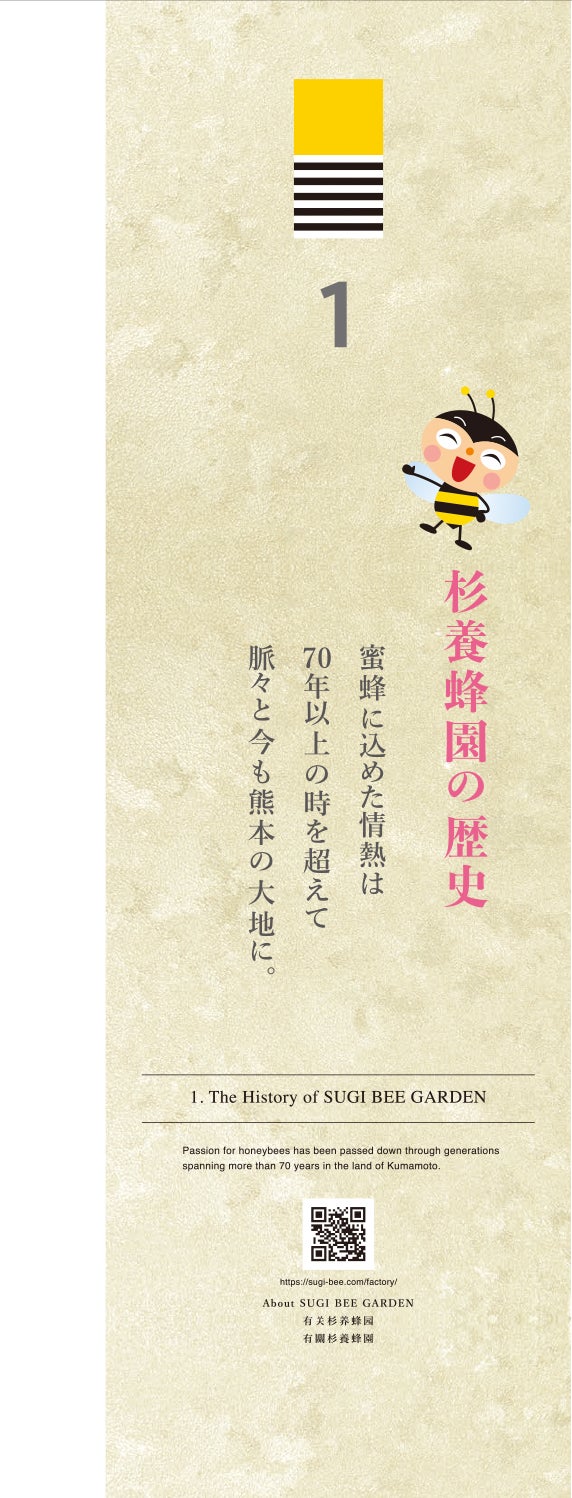 1
杉養蜂園の歴史
蜜蜂に込めた情熱は
70年以上の時を超えて
脈々と今も熊本の大地に。
1. The History of SUGI BEE GARDEN
Passion for honeybees has been passed down through generations
spanning more than 70 years in the land of Kumamoto.
https://sugi-bee.com/factory/
About SUGI BEE GARDEN
有关杉养蜂园
有關杉養蜂園